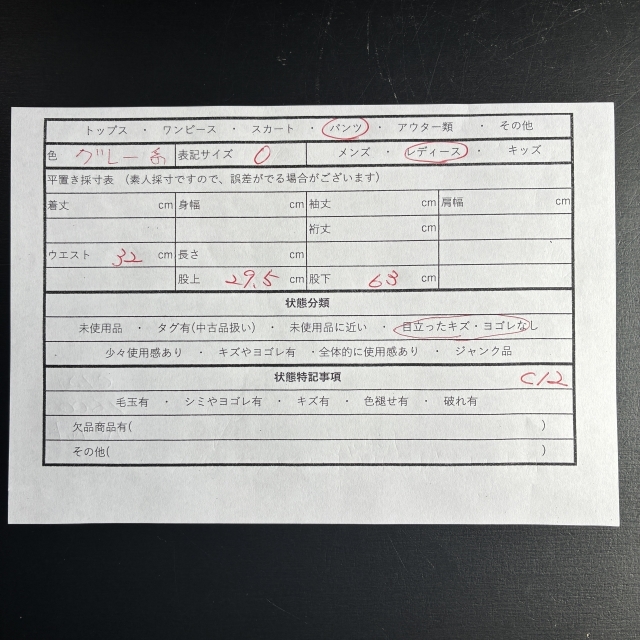 トップス ・ ワンピース ・ スカート ・ パンツ ・ アウター類 ・ その他
色 グレー系 表記サイズ 0 メンズ ・ レディース ・ キッズ
平置き採寸表 (素人採寸ですので、誤差がでる場合がございます)
着丈 cm 身幅 cm 袖丈 cm 肩幅 cm
裄丈 cm
ウエスト 32 cm 長さ cm
股上 29.5 cm 股下 63 cm
状態分類
未使用品 ・ タグ有(中古品扱い) ・ 未使用品に近い ・ 目立ったキズ・ヨゴレなし
少々使用感あり ・ キズやヨゴレ有 ・全体的に使用感あり ・ ジャンク品
状態特記事項 C12
毛玉有 ・ シミやヨゴレ有 ・ キズ有 ・ 色褪せ有 ・ 破れ有
欠品商品有( )
その他( )